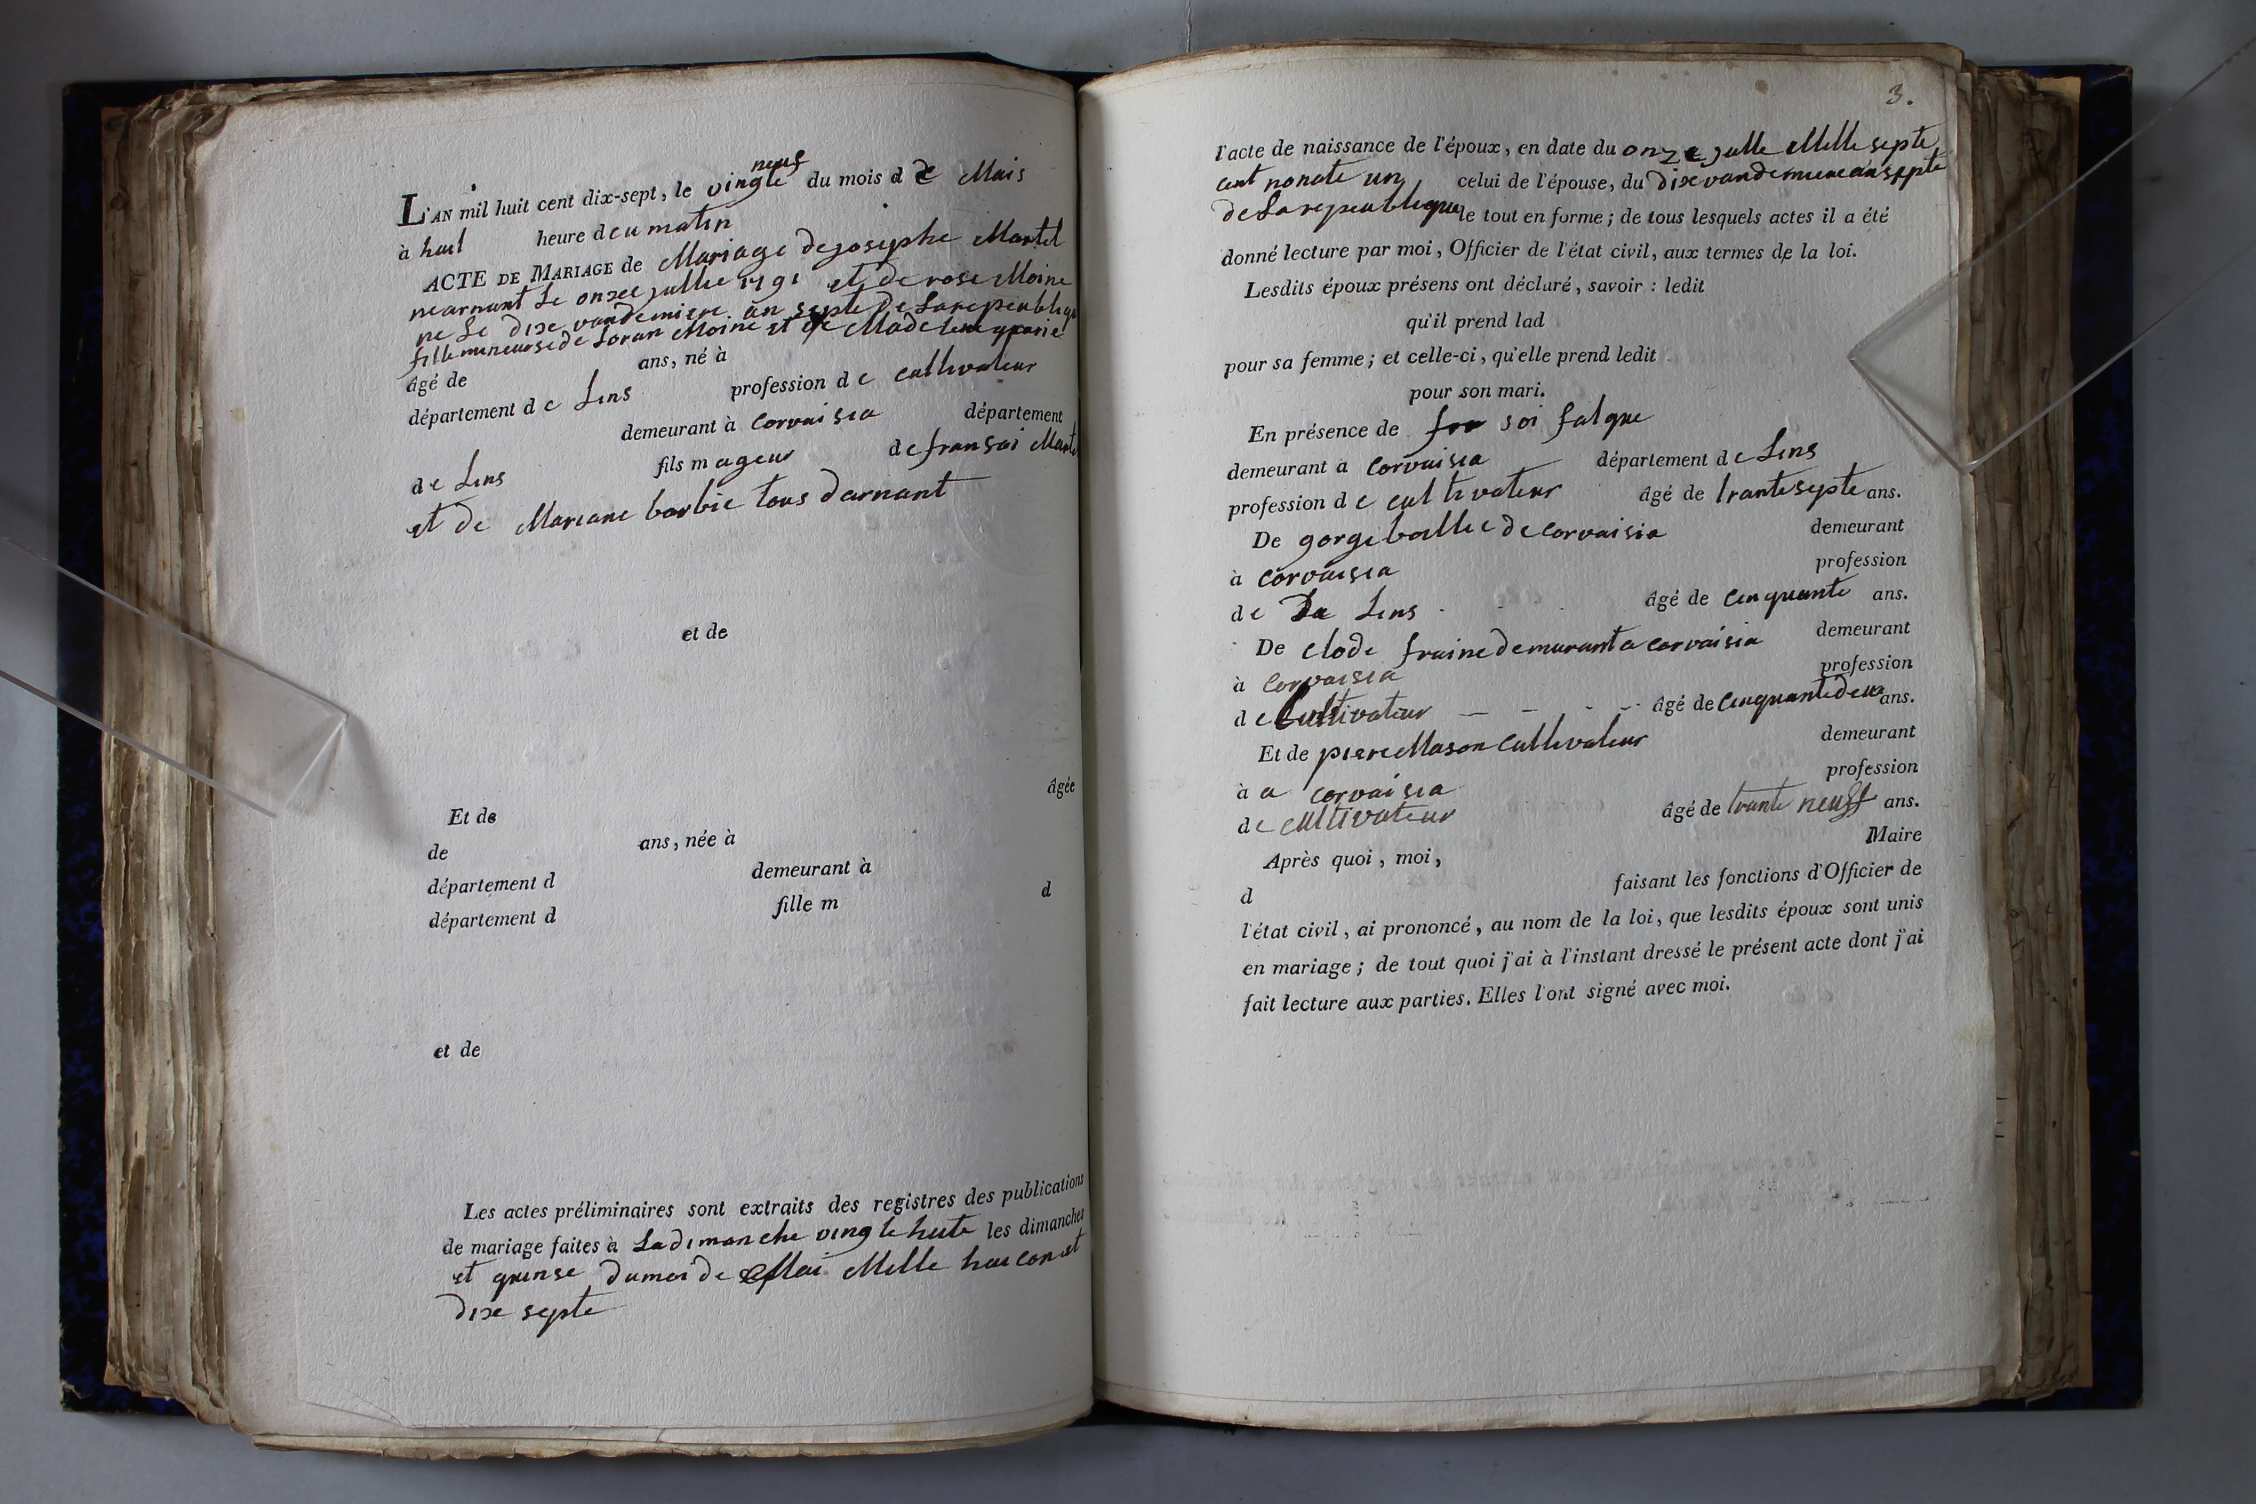 L'AN mil huit cent dix-sept, le vingte neuf du mois d de Mais
à huit heure deu matin
ACTE DE MARIAGE de Mariage de josephe Martel
ne arnant Le onzee jullie 1791 et de rose Moine
ne Le dixe vandemiere an septe De La repeubliqu
fille mineurse de Loran Moine et de Madeleine
âgé de ans, né à
département de Lins profession de cultivateur
demeurant à Corvaisia département
de Lins fils mageur de fransoi Martel
et de Mariane barbie tous darnant
et de
Et de âgée
de ans, née à
département d demeurant à
département d fille m d
et de
Les actes préliminaires sont extraits des registres des publications
de mariage faites à La dimanche vingte huite les dimanches
et quinse du moi de Mai Mille hui can et
dixe septe
3.
l'acte de naissance de l'époux, en date du onze julle Mille septe
cent nonate un celui de l'épouse, du dixe vandemiere an septe
de La repeublique le tout en forme; de tous lesquels actes il a été
donné lecture par moi, Officier de l'état civil, aux termes de la loi.
Lesdits époux présens ont déclaré, savoir : ledit
qu'il prend lad
pour sa femme; et celle-ci, qu'elle prend ledit
pour son mari.
En présence de fran soi falque
demeurant à Corvaisia département de Lins
profession de cultivateur âgé de trante septe ans.
De gorge baillie de corvaisia demeurant
à corvaisia profession
de Da Lins âgé de cinquante ans.
De clode fraine demurant a corvaisia demeurant
à corvaisia profession
de Cultivateur âgé de cinquante deux ans.
Et de piere Mason Cultivateur demeurant
à a corvaisia profession
de cultivateur âgé de trante neuff ans.
Après quoi, moi, Maire
d faisant les fonctions d'Officier de
l'état civil, ai prononcé, au nom de la loi, que lesdits époux sont unis
en mariage; de tout quoi j'ai à l'instant dressé le présent acte dont j'ai
fait lecture aux parties. Elles l'ont signé avec moi.